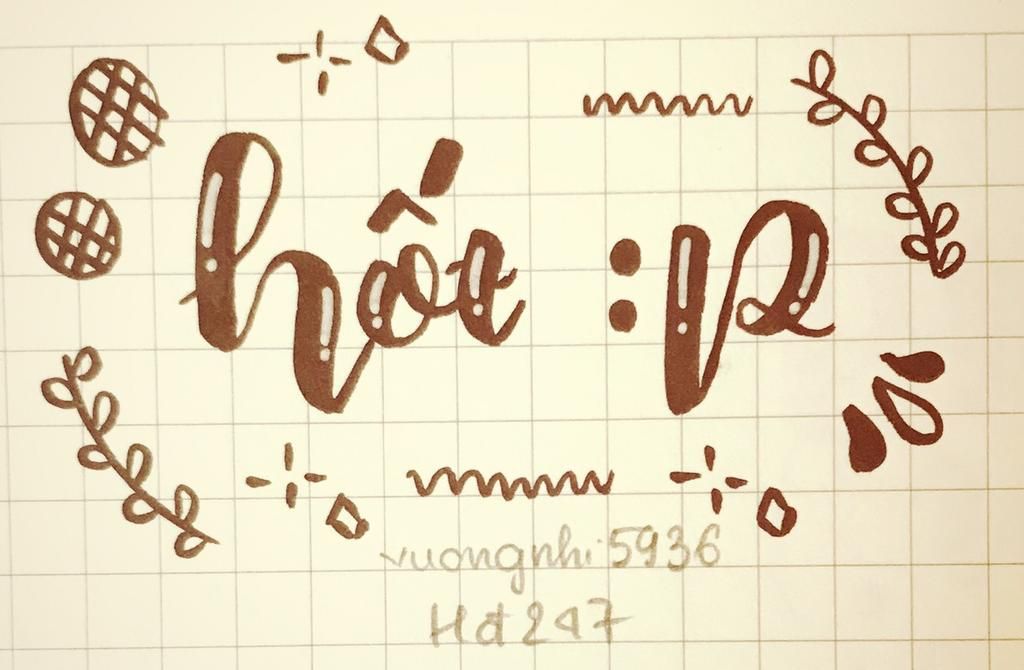 hốt :p
vuongnhi5936
Hđ247